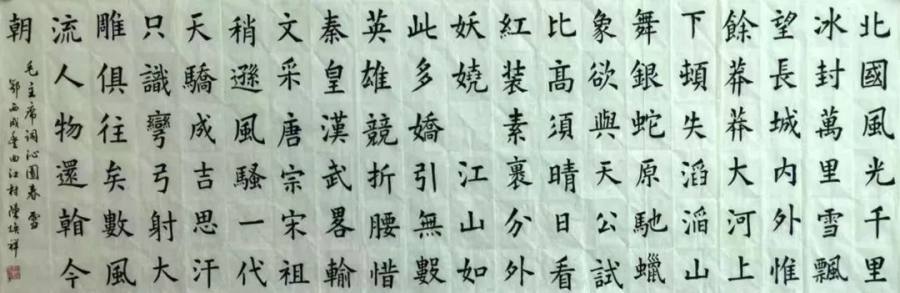 北國風光千里
冰封萬里雪飄
望長城内外惟
餘莽莽大河上
下頓失滔滔山
舞銀蛇原馳蠟
象欲與天公試
比高須晴日看
紅装素裹分外
妖嬈 江山如
此多嬌引無數
英雄競折腰惜
秦皇漢武畧輸
文采唐宗宋祖
稍遜風騷一代
天驕成吉思汗
只識彎弓射大
雕俱往矣數風
流人物還翰今
朝
毛主席詞沁園春 雪
西曲江村陳煥祥